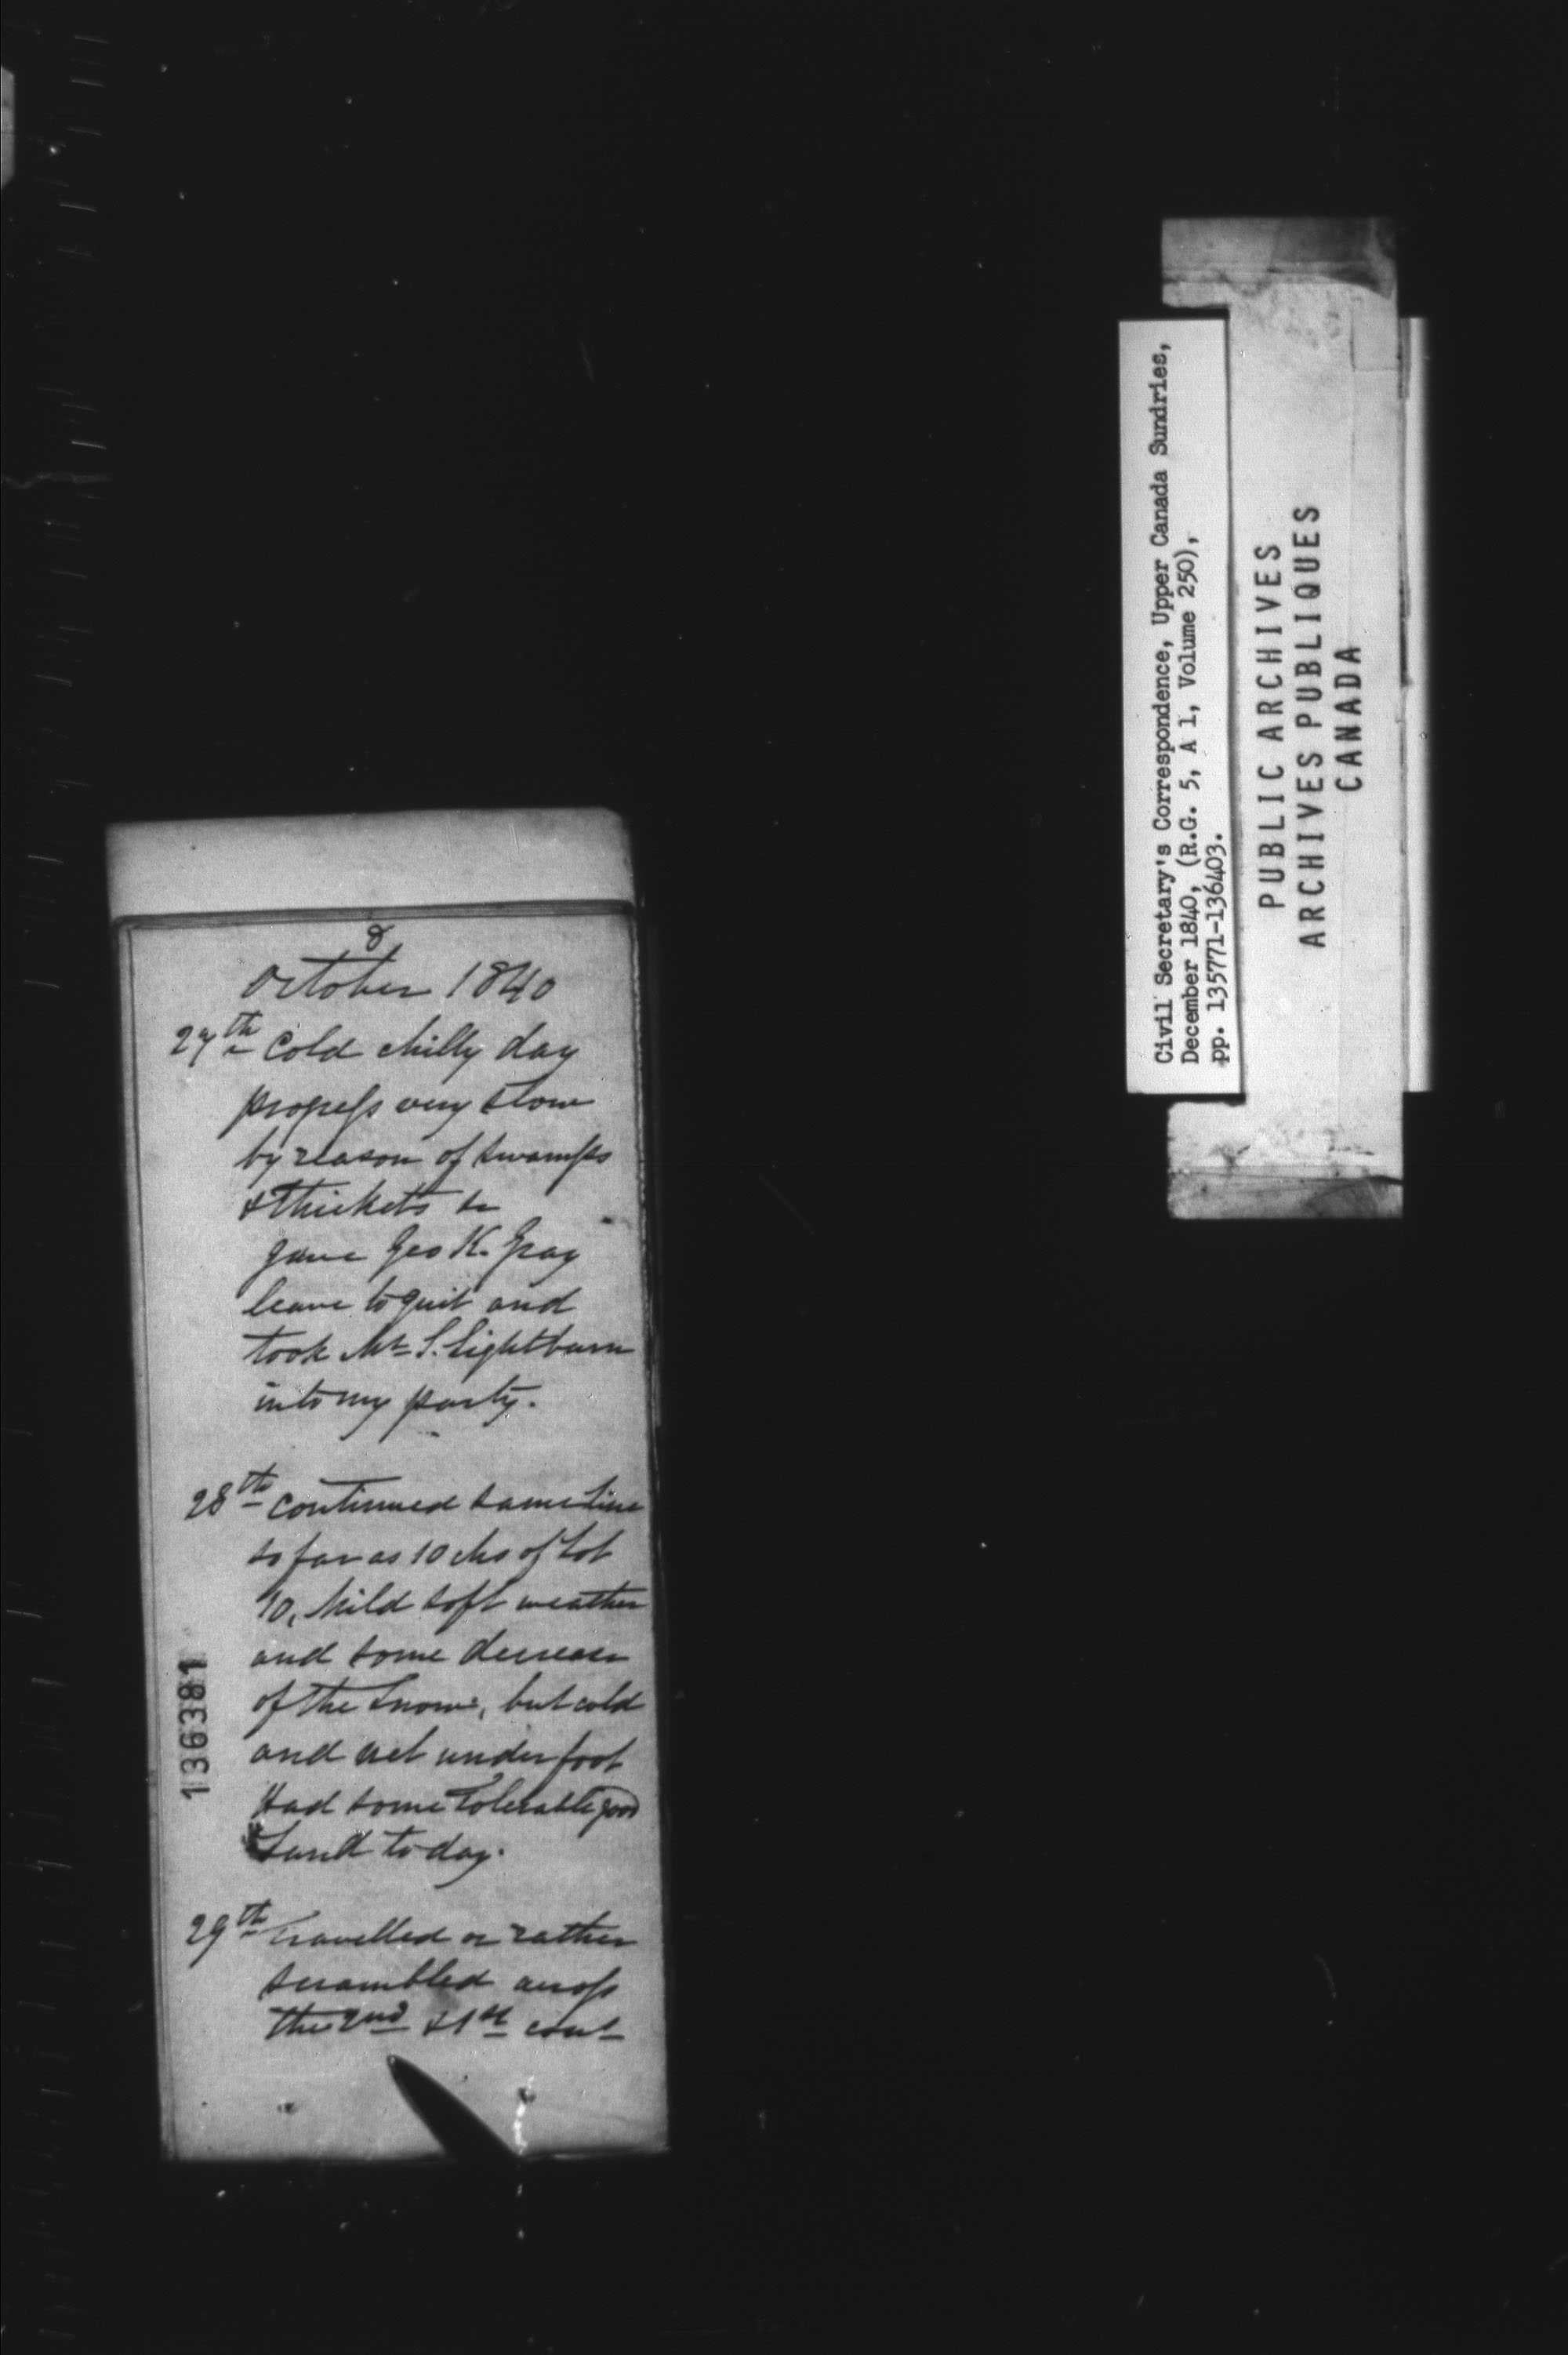 8
October 1840
27th Cold chilly day
progress very slow
by reason of swamps
& thickets &c
gave Geo K. Gray
leave to quit and
took Mr S. Lightburn
into my party.
28th continued same line
so far as 10 chs of Lot
10, Mild soft weather
and some decrease
of the Snow, but cold
and wet under foot
Had some tolerable good
Land to day.
29th travelled or rather
scrambled across
the 2nd & 1st cons
136381
Civil Secretary's Correspondence, Upper Canada Sundries,
December 1840, (R.G. 5, A 1, Volume 250),
pp. 135771-136403.
PUBLIC ARCHIVES
ARCHIVES PUBLIQUES
CANADA